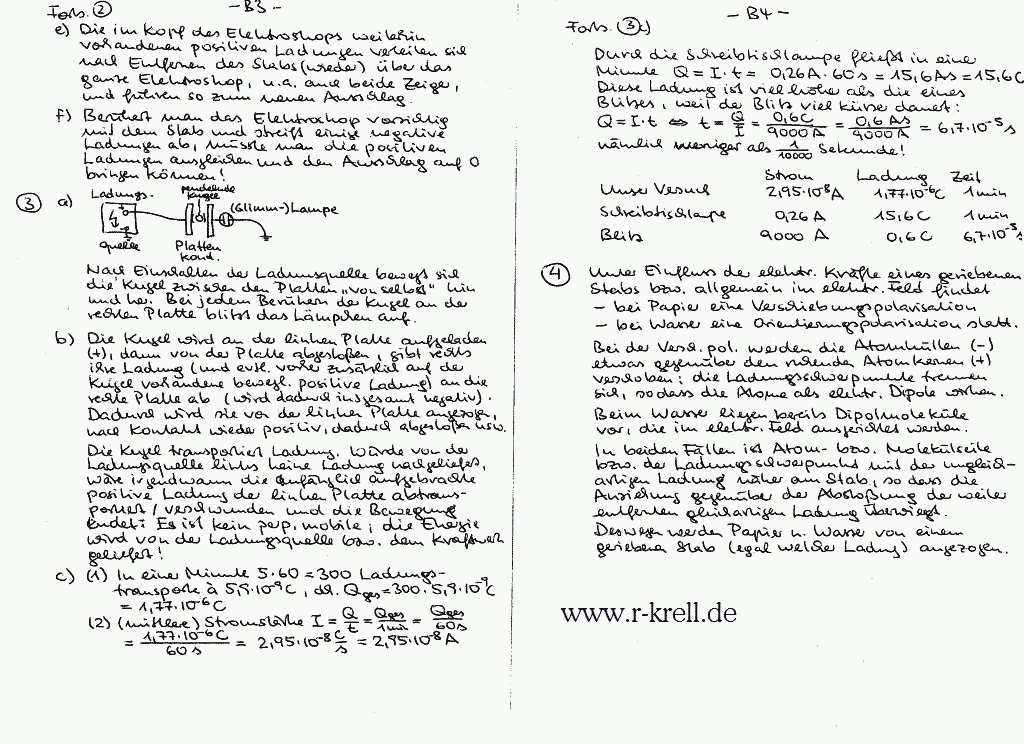 - B3 -
Forts. ②
e) Die im Kopf des Elektroskops weiterhin
vorhandenen positiven Ladungen verteilen sich
nach Entfernen des Stabs (wieder) über das
ganze Elektroskop, u.a. auch beide Zeiger,
und führen so zum neuen Ausschlag.
f) Berührt man das Elektroskop vorsichtig
mit dem Stab und streift einige negative
Ladungen ab, müsste man die positiven
Ladungen ausgleichen und den Ausschlag auf 0
bringen können!
③ a) Ladungs-
quelle
Pendelnde
Kugel
Platten
kond.
(Glimm-)Lampe
Nach Einschalten der Ladungsquelle bewegt sich
die Kugel zwischen den Platten „von selbst" hin
und her. Bei jedem Berühren der Kugel an der
rechten Platte blitzt das Lämpchen auf.
b) Die Kugel wird an der linken Platte aufgeladen
(+), dann von der Platte abgestoßen, gibt rechts
ihre Ladung (und evtl. vorher zusätzlich auf der
Kugel vorhandene bewegl. positive Ladung) an die
rechte Platte ab (wird dadurch insgesamt negativ).
Dadurch wird sie von der linken Platte angezogen,
nach Kontakt wieder positiv, dadurch abgestoßen usw.
Die Kugel transportiert Ladung. Würde von der
Ladungsquelle links keine Ladung nachgeliefert,
wäre irgendwann die anfänglich aufgebrachte
positive Ladung der linken Platte abtrans-
portiert / verschwunden und die Bewegung
endet: Es ist kein perp. mobile; die Energie
wird von der Ladungsquelle bzw. dem Kraftwerk
geliefert!
c) (1) In einer Minute 5·60 = 300 Ladungs-
transporte à 5,9·10⁻⁹C, d.h. Qges = 300·5,9·10⁻⁹C
= 1,77·10⁻⁶C
(2) (mittlere) Stromstärke I = Q/t = Qges/1min = Qges/60s
= 1,77·10⁻⁶C/60s = 2,95·10⁻⁸ C/s = 2,95·10⁻⁸A
- B4 -
Forts. ③ c)
Durch die Schreibtischlampe fließt in einer
Minute Q = I·t = 0,26A·60s = 15,6As = 15,6C
Diese Ladung ist viel höher als die eines
Blitzes, weil der Blitz viel kürzer dauert:
Q = I·t ⇔ t = Q/I = 0,6C/9000A = 0,6As/9000A = 6,7·10⁻⁵s
nämlich weniger als 1/10000 Sekunde!
Strom Ladung Zeit
Unser Versuch 2,95·10⁻⁸A 1,77·10⁻⁶C 1min
Schreibtischlampe 0,26A 15,6C 1min
Blitz 9000A 0,6C 6,7·10⁻⁵s
④ Unter Einfluss der elektr. Kräfte eines geriebenen
Stabs bzw. allgemein im elektr. Feld findet
- bei Papier eine Verschiebungspolarisation
- bei Wasser eine Orientierungspolarisation statt.
Bei der Versch.pol. werden die Atomhüllen (-)
etwas gegenüber den ruhenden Atomkernen (+)
verschoben: die Ladungsschwerpunkte trennen
sich, so dass die Atome als elektr. Dipole wirken.
Beim Wasser liegen bereits Dipolmoleküle
vor, die im elektr. Feld ausgerichtet werden.
In beiden Fällen ist Atom- bzw. Molekülseite
bzw. der Ladungsschwerpunkt mit der ungleich-
artigen Ladung näher am Stab, so dass die
Anziehung gegenüber der Abstoßung der weiter
entfernten gleichartigen Ladung überwiegt.
Deswegen werden Papier u. Wasser von einem
geriebenen Stab (egal welcher Ladung) angezogen.
www.r-krell.de